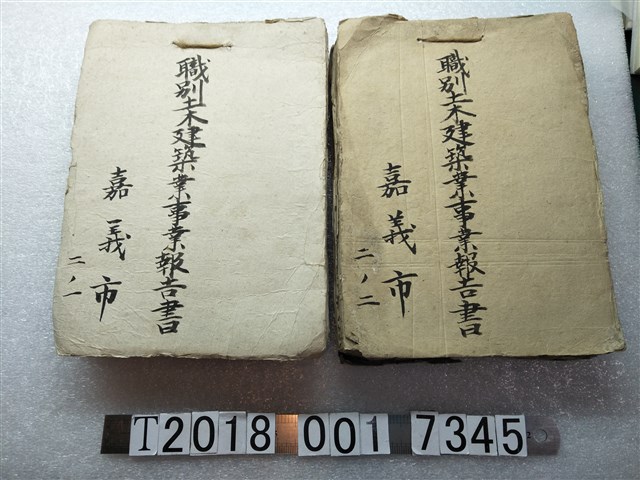 職別土木建築業事業報告書
嘉義市
二ノ一
職別土木建築業事業報告書
嘉義市
二ノ二
T2018 001 7345